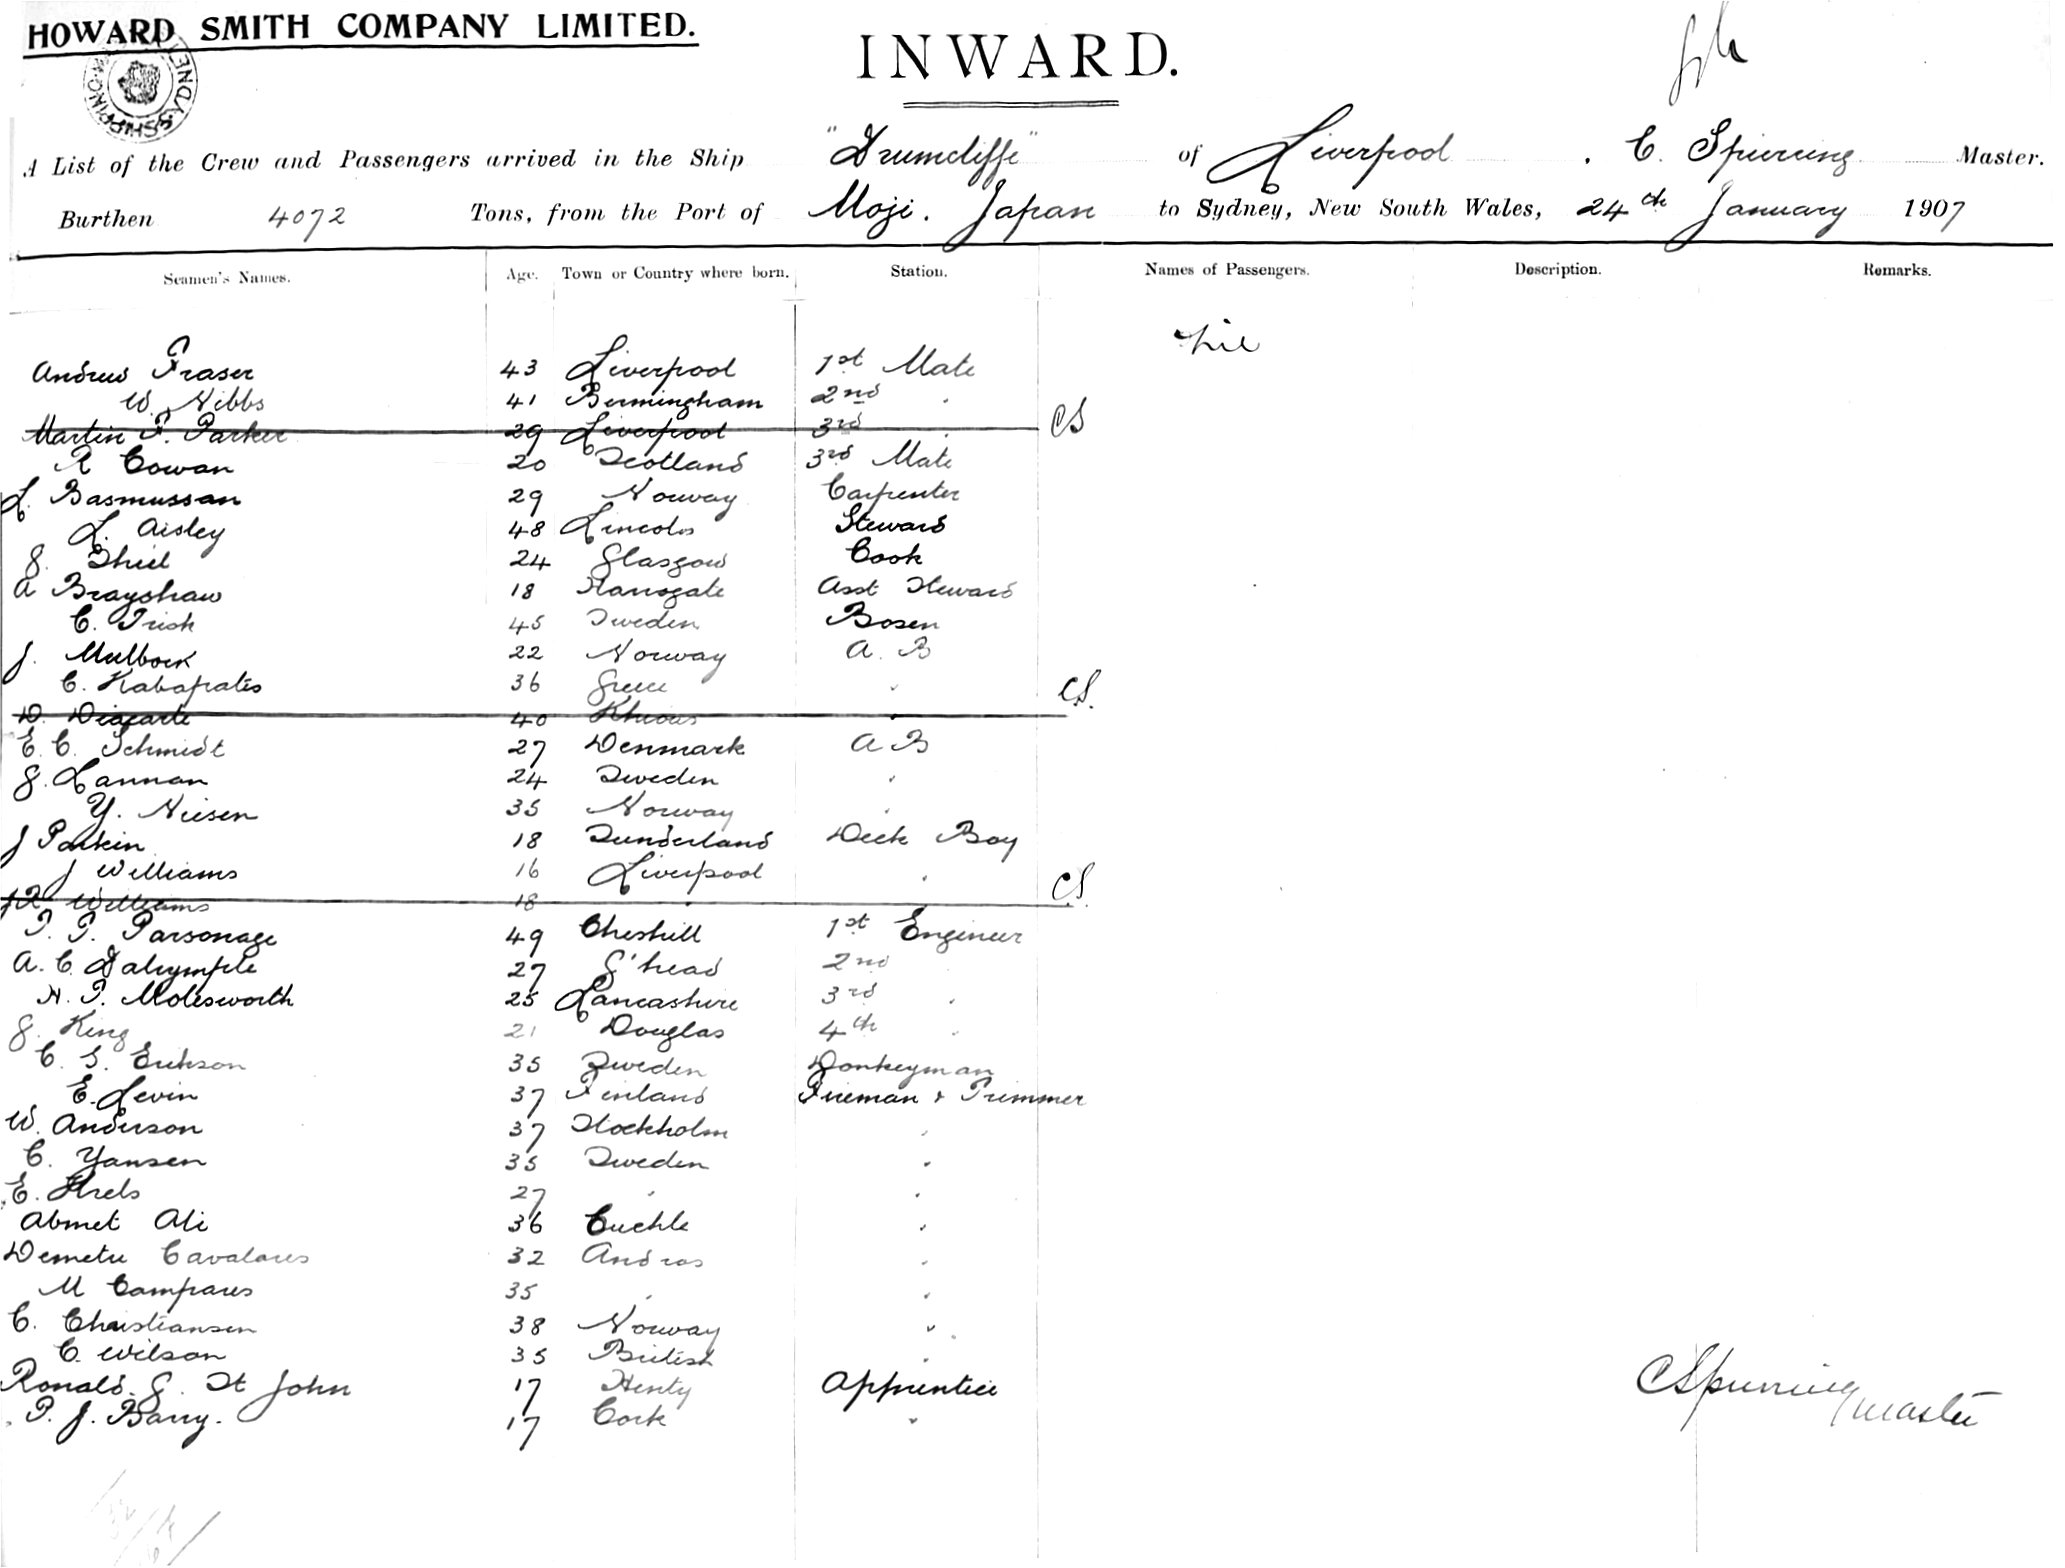 HOWARD SMITH COMPANY LIMITED.
INWARD.
SHIPPING SYDNEY
A List of the Crew and Passengers arrived in the Ship "Drumcliffe" of Liverpool . C. Spurring Master.
Burthen 4072 Tons, from the Port of Moji. Japan to Sydney, New South Wales, 24th January 1907
Seamen's Names. Age. Town or Country where born. Station. Names of Passengers. Description. Remarks.
nil
Andrew Fraser 43 Liverpool 1st Mate
W. Nibbs 41 Birmingham 2nd "
Martin F. Parker 29 Liverpool 3rd " CS
R Cowan 20 Scotland 3rd Mate
L. Basmussan 29 Norway Carpenter
L. Aisley 48 Lincoln Steward
G. Thiel 24 Glasgow Cook
A Brayshaw 18 Ramsgate Asst Steward
C. Trisk 45 Sweden Bosen
J. Mulbock 22 Norway A. B
C. Kabapatis 36 Greece "
D. Diacarte 40 "  C.S.
E. C. Schmidt 27 Denmark A B
G. Lannan 24 Sweden "
Y. Niesen 35 Norway "
J Parkin 18 Sunderland Deck Boy
J Williams 16 Liverpool "
Williams 18 " C.S.
T. T. Parsonage 49 Cheshill 1st Engineer
A. C. Dalrymple 27 G'head 2nd
H. T. Molesworth 25 Lancashire 3rd "
G. King 21 Douglas 4th "
C. S. Erikson 35 Sweden Donkeyman
E. Levin 37 Finland Fireman & Trimmer
W. Anderson 37 Stockholm "
C. Yansen 35 Sweden "
E. Krels 27 " "
Abmet Ali 36 "
Demetri Cavalares 32 Andros "
M Campares 35 " "
C. Christiansen 38 Norway "
C. Wilson 35 British "
Ronald. G. St John 17 Henty Apprentice
P. J. Barry. 17 Cork "
C Spurring
Master